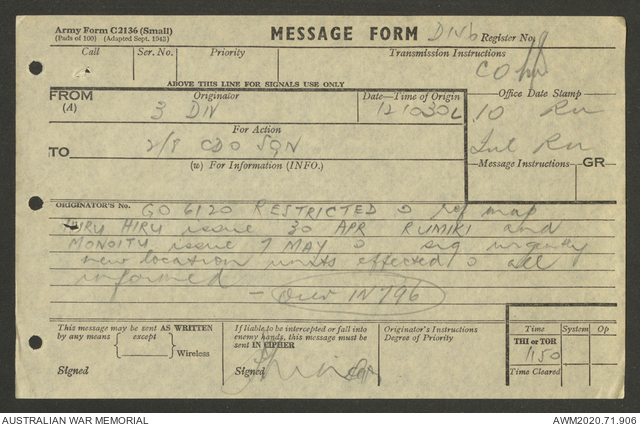 Army Form C2136 (Small)
(Pads of 100) (Adapted Sept. 1943)
MESSAGE FORM
Register No.
Call
Ser. No.
Priority
Transmission Instructions
ABOVE THIS LINE FOR SIGNALS USE ONLY
FROM
(A)
Originator
3 DIV
Date—Time of Origin
121030L
Office Date Stamp
10
For Action
TO
2/8 CDO SQN
(w) For Information (INFO.)
Message Instructions
GR
ORIGINATOR'S No.
GO 6120 RESTRICTED o ref map
HIRU issue 30 APR RUMIKI and
MONOITU issue 7 MAY o sig urgently
new location units effected o all
informed
- Our IN 796
This message may be sent AS WRITTEN
by any means
except
Wireless
Signed
If liable to be intercepted or fall into
enemy hands, this message must be
sent IN CIPHER
Signed
Originator's Instructions
Degree of Priority
Time
System
Op
THI or TOR
1150
Time Cleared
AUSTRALIAN WAR MEMORIAL
AWM2020.71.906